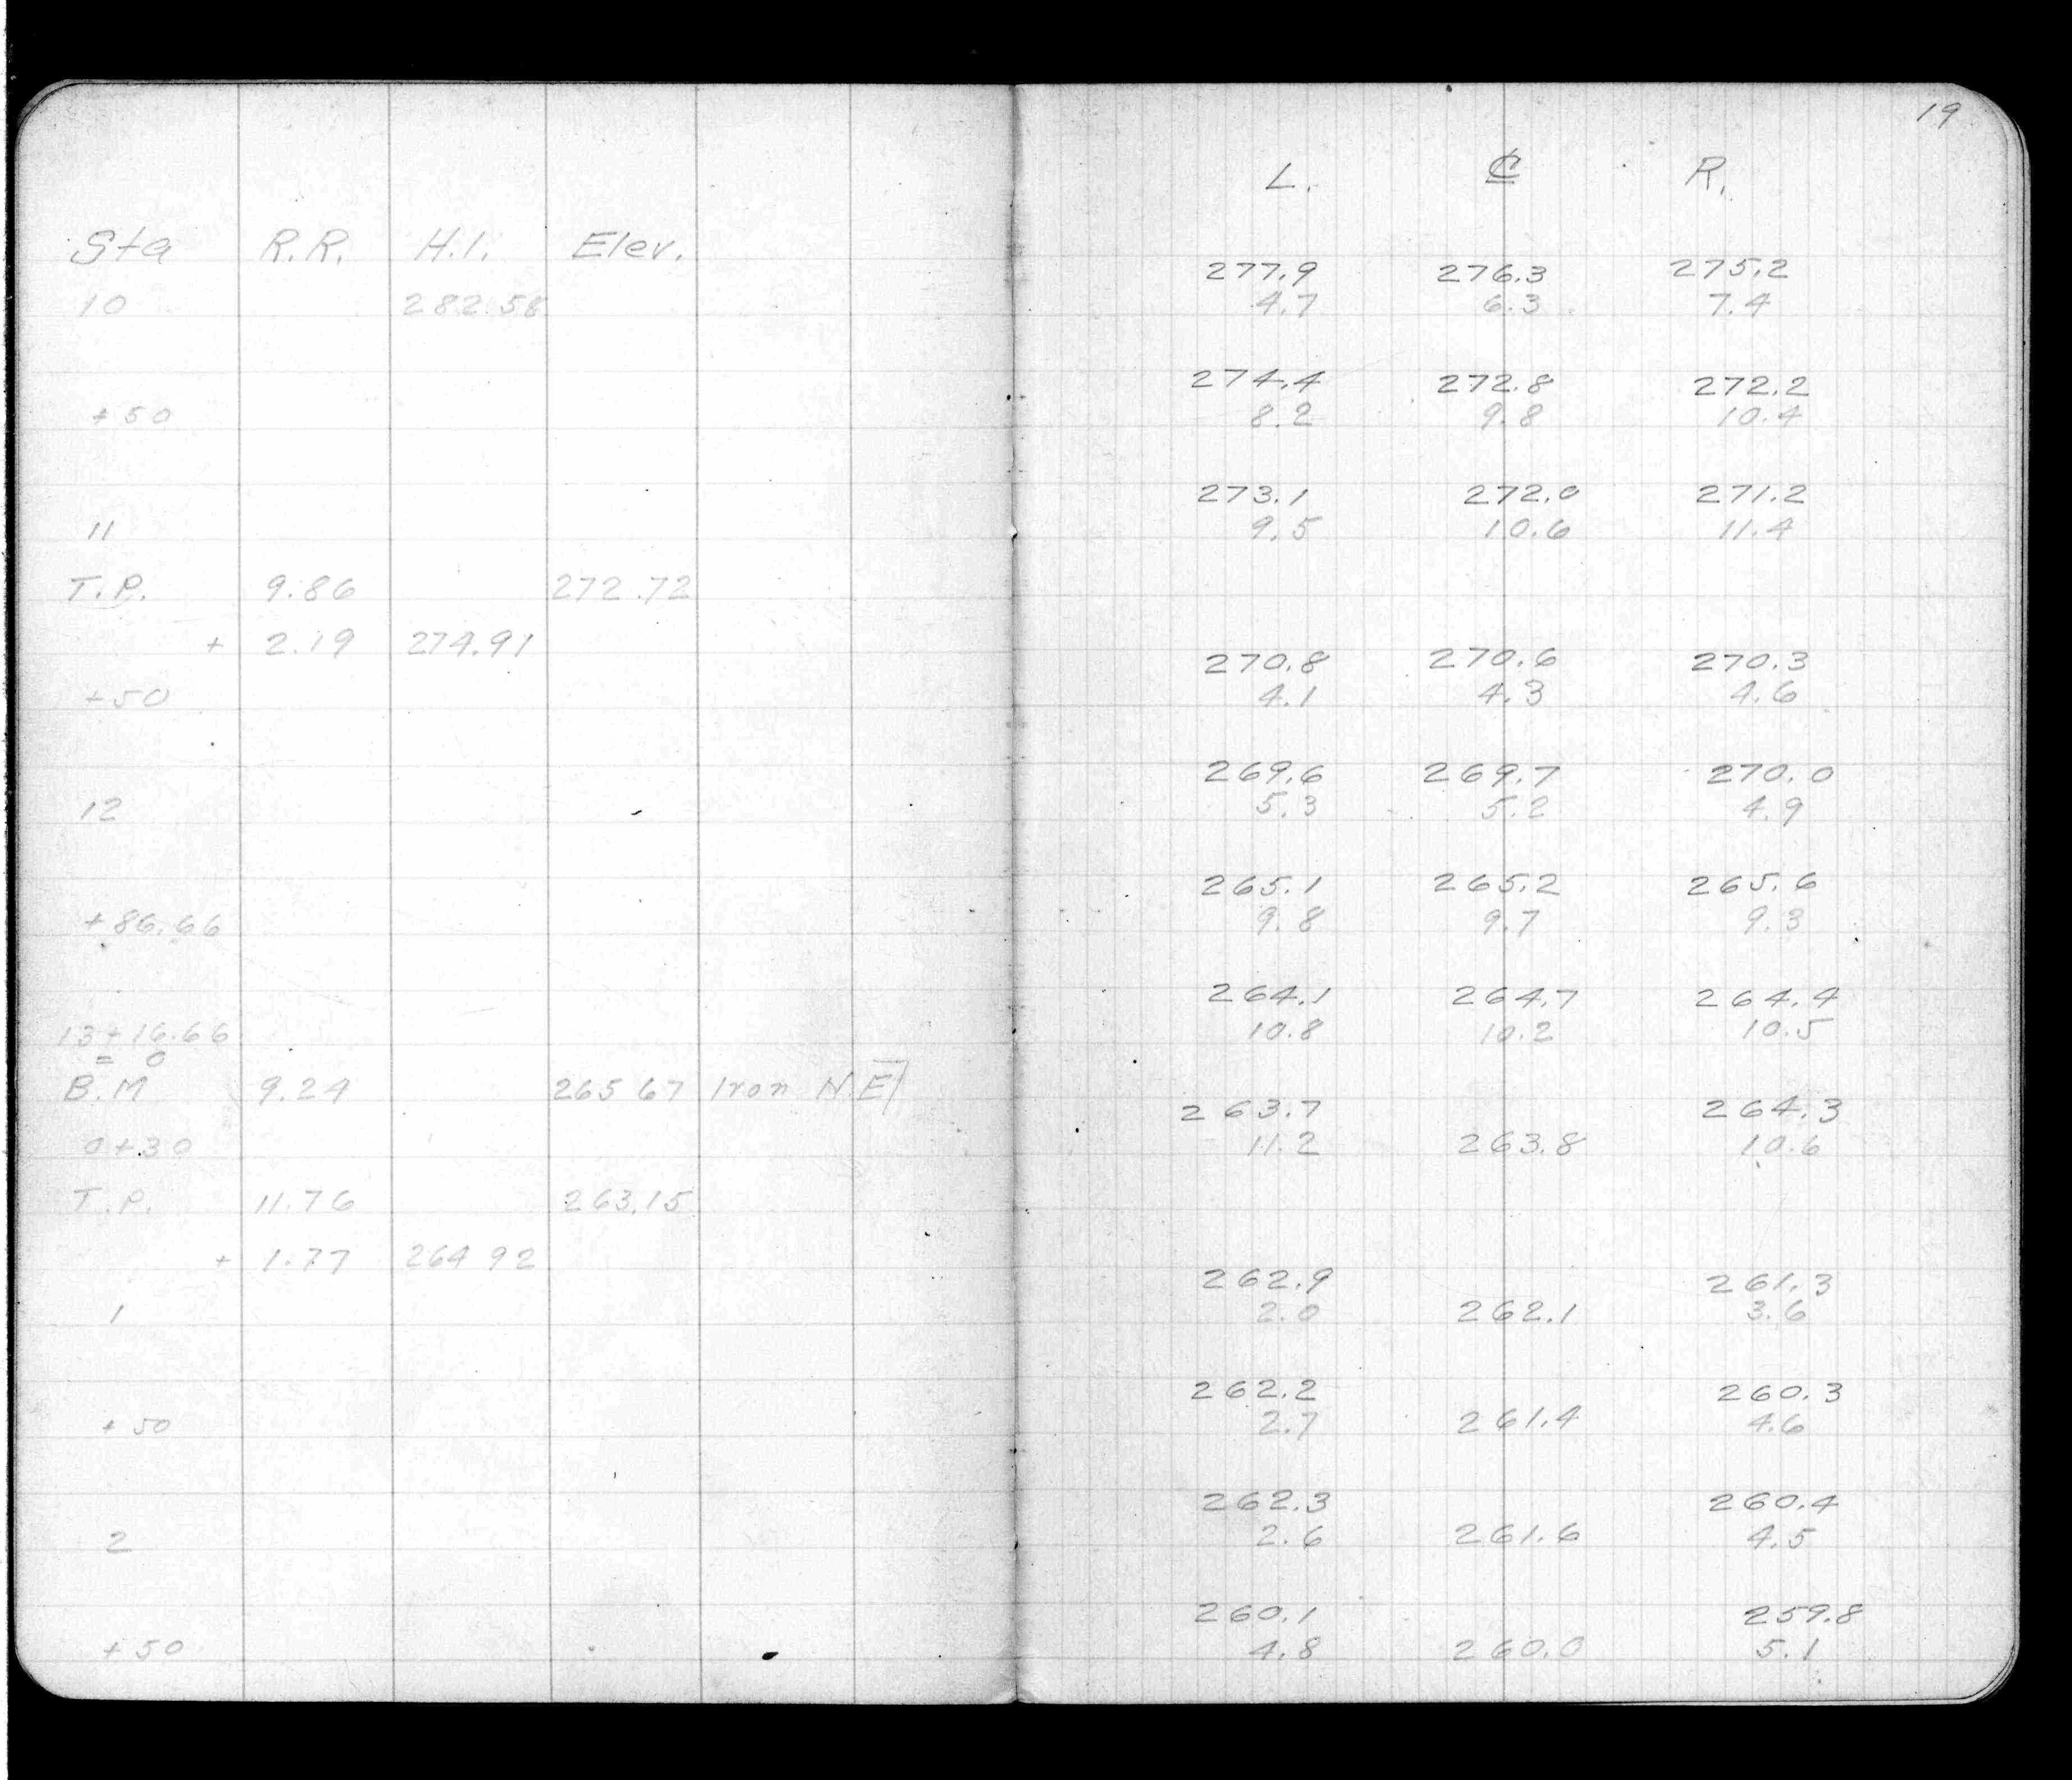 Sta R.R. H.I. Elev.
10 282.58
+50
11
T.P. 9.86 272.72
+ 2.19 274.91
+50
12
+86.66
13+16.66
= 0
B.M 9.24 265 67 Iron N.E
0+30
T.P. 11.76 263.15
+ 1.77 264 92
1
+50
2
+50
19
L. ℄ R.
277.9 276.3 275.2
4.7 6.3 7.4
274.4 272.8 272.2
8.2 9.8 10.4
273.1 272.0 271.2
9.5 10.6 11.4
270.8 270.6 270.3
4.1 4.3 4.6
269.6 269.7 270.0
5.3 5.2 4.9
265.1 265.2 265.6
9.8 9.7 9.3
264.1 264.7 264.4
10.8 10.2 10.5
263.7 264.3
11.2 263.8 10.6
262.9 261.3
2.0 262.1 3.6
262.2 260.3
2.7 261.4 4.6
262.3 260.4
2.6 261.6 4.5
260.1 259.8
4.8 260.0 5.1